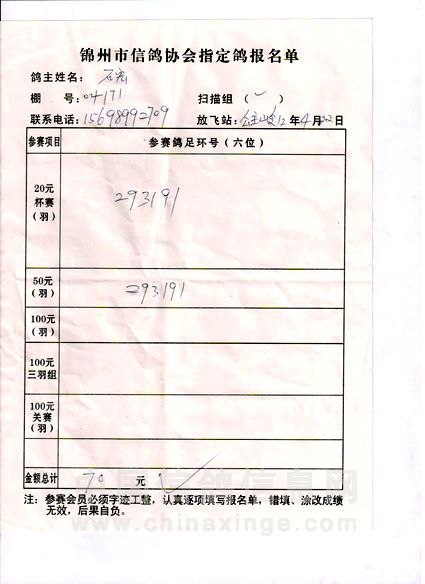 锦州市信鸽协会指定鸽报名单
鸽主姓名：石宏
棚 号：04171 扫描组（✓）
联系电话：15698992709 放飞站：公主岭12年4月22日
参赛项目 参赛鸽足环号（六位）
20元
杯赛
（羽） 293191
50元
（羽） 293191
100元
（羽）
100元
三羽组
100元
关赛
（羽）
金额总计 70 元
注：参赛会员必须字迹工整，认真逐项填写报名单，错填、涂改成绩
无效，后果自负。
中国信鸽信息网
www.chinaxinge.com